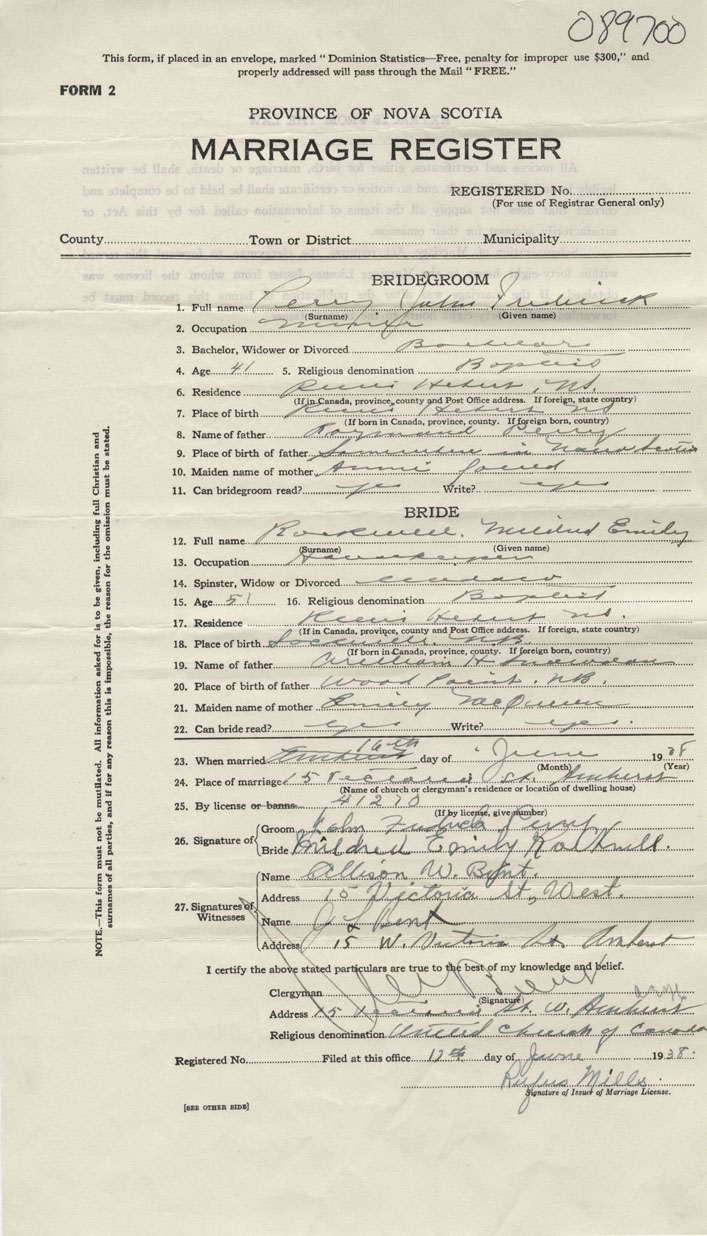 089700
This form, if placed in an envelope, marked "Dominion Statistics—Free, penalty for improper use $300," and
properly addressed will pass through the Mail "FREE."
FORM 2
PROVINCE OF NOVA SCOTIA
MARRIAGE REGISTER
REGISTERED No.
(For use of Registrar General only)
County Town or District Municipality
BRIDEGROOM
1. Full name Perry John Fredrick
(Surname) (Given name)
2. Occupation
3. Bachelor, Widower or Divorced Bachelor
4. Age 41 5. Religious denomination Baptist
6. Residence River Hebert, NS.
(If in Canada, province, county and Post Office address. If foreign, state country)
7. Place of birth River Hebert NS
(If born in Canada, province, county. If foreign born, country)
8. Name of father Raymond Perry
9. Place of birth of father Somewhere in Nova Scotia
10. Maiden name of mother Annie
11. Can bridegroom read? yes Write? yes
BRIDE
12. Full name Rockwell Mildred Emily
(Surname) (Given name)
13. Occupation Housekeeper
14. Spinster, Widow or Divorced widow
15. Age 51 16. Religious denomination Baptist
17. Residence River Hebert NS.
(If in Canada, province, county and Post Office address. If foreign, state country)
18. Place of birth Sackville N.B.
(If born in Canada, province, county. If foreign born, country)
19. Name of father William H
20. Place of birth of father Wood Point, NB.
21. Maiden name of mother Emily
22. Can bride read? yes Write? yes.
23. When married Amherst 16th day of June 1938
(Month) (Year)
24. Place of marriage 15 Victoria St. Amherst
(Name of church or clergyman's residence or location of dwelling house)
25. By license or banns 41270
(If by license, give number)
26. Signature of
Groom John Fredrick Perry
Bride Mildred Emily Rockwell.
27. Signatures of Witnesses
Name Allison W. Bent.
Address 15 Victoria St, West.
Name Bent
Address 15 W. Victoria St Amherst
I certify the above stated particulars are true to the best of my knowledge and belief.
Clergyman Bent
(Signature)
Address 15 Victoria St. W. Amherst
Religious denomination United Church of Canada
Registered No. Filed at this office 17th day of June 1938.
Rufus Mills.
Signature of Issuer of Marriage License.
[SEE OTHER SIDE]
NOTE.—This form must not be mutilated. All information asked for is to be given, including full Christian and
surnames of all parties, and if for any reason this is impossible, the reason for the omission must be stated.